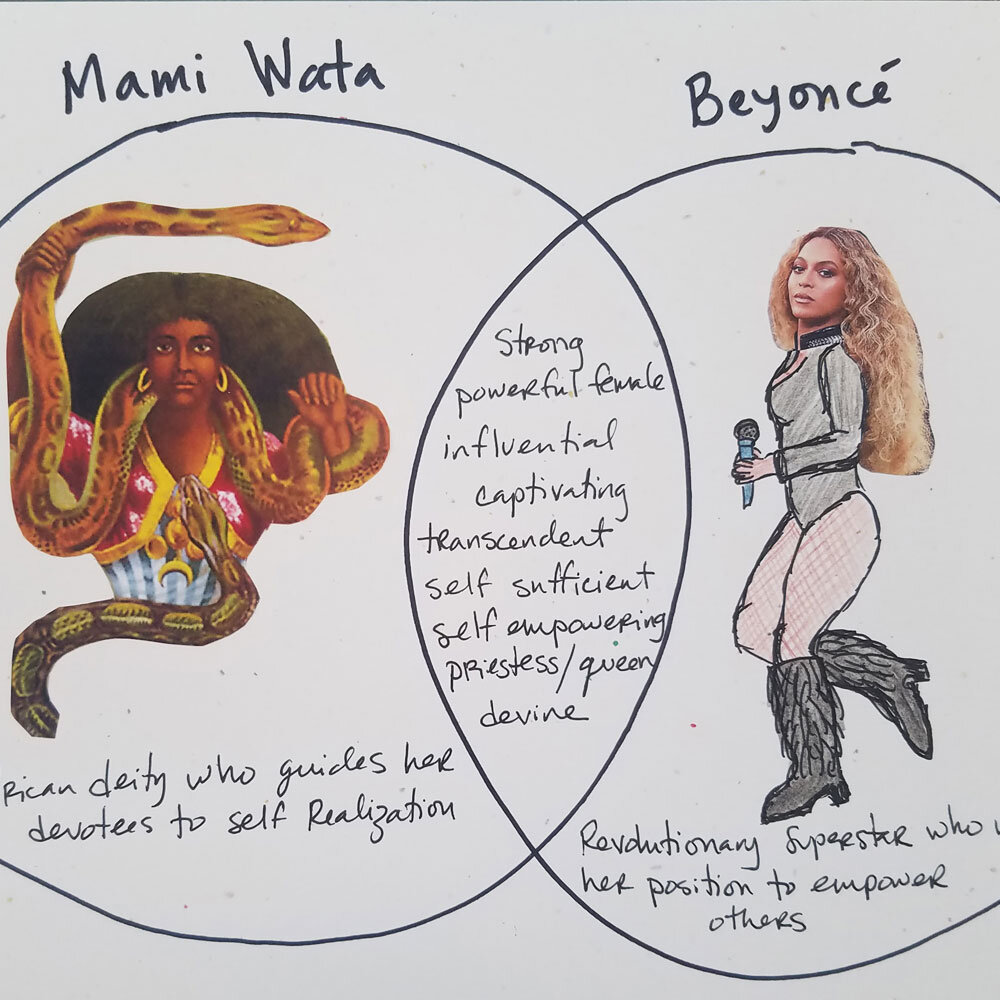 Mami Wata
Beyoncé
Strong
powerful female
influential
captivating
transcendent
self sufficient
self empowering
priestess/queen
devine
rican deity who guides her
devotees to self Realization
Revolutionary Superstar who
her position to empower
others